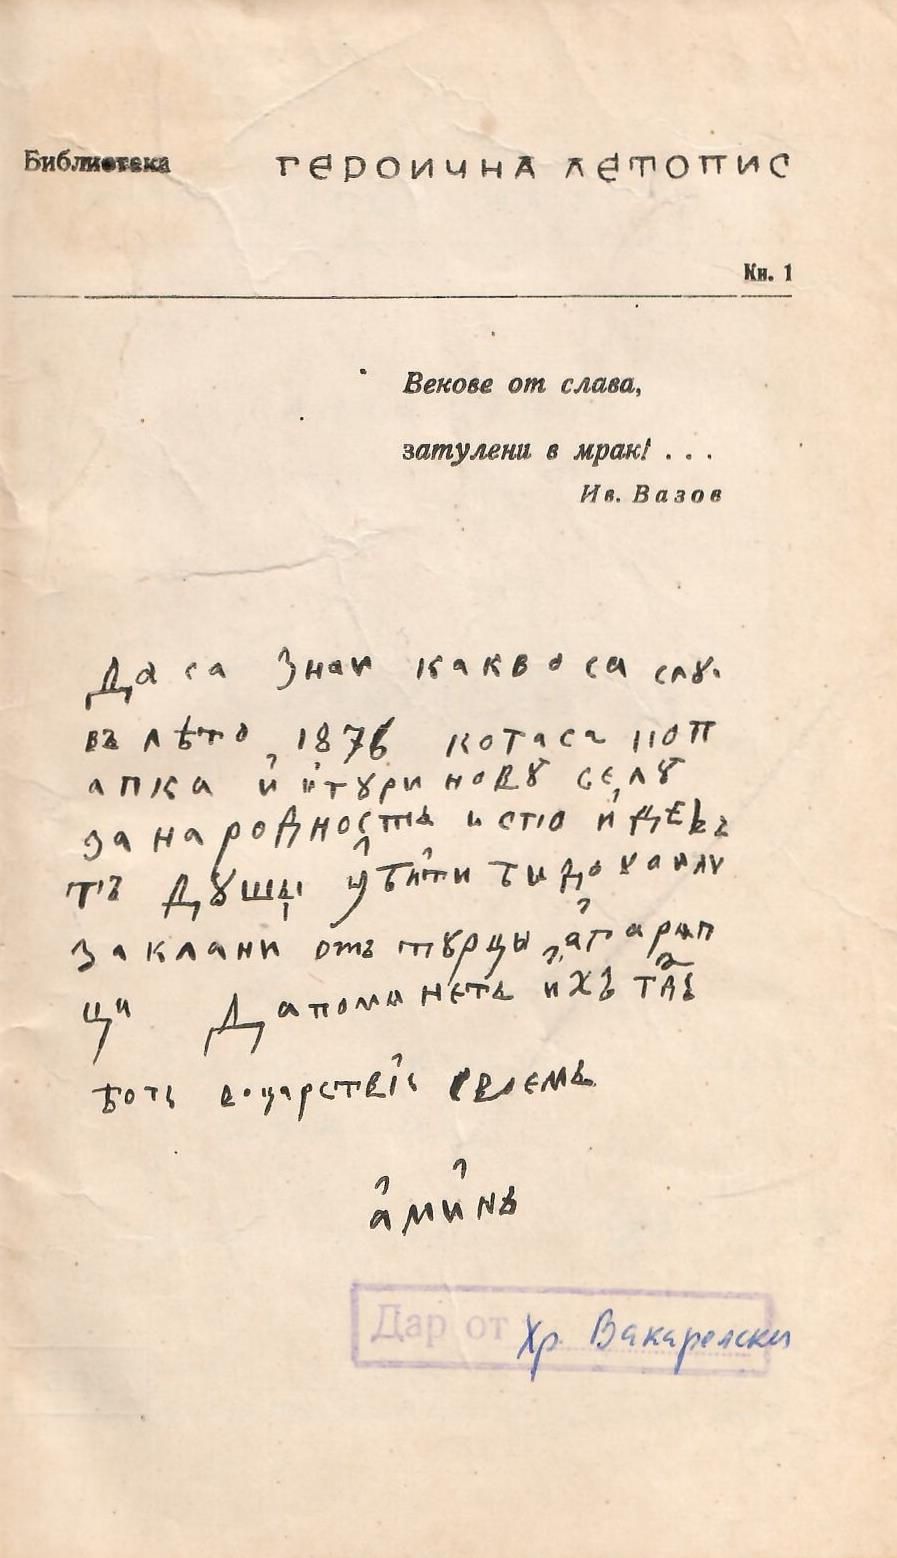 Библиотека ГЕРОИЧНА ЛЕТОПИС
Кн. 1
Векове от слава,
затулени в мрак! . . .
Ив. Вазов
Да са знаи какво са слу.
въ лѣто 1876 котаса поп
апка и тури новȣ селȣ
за народностъ и сто и
тъ дȣшы
заклани отъ тȣрцы
ци да помѧнетъ ихъ
воцарствїи своемъ
аминъ
Дар от Хр. Вакарелски